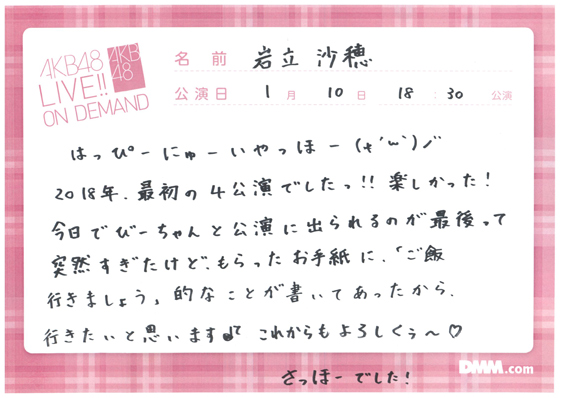 AKB48
LIVE!!
ON DEMAND
AKB
48
名前 岩立 沙穂
公演日 1月 10日 18:30 公演
はっぴーにゅーいやっほー(*'ω'*)ノ
2018年、最初の4公演でしたっ!!楽しかった!
今日でびーちゃんと公演に出られるのが最後って
突然すぎたけど、もらったお手紙に、「ご飯
行きましょう」的なことが書いてあったから、
行きたいと思います♪ これからもよろしくぅ〜♡
さっほーでした!
DMM.com